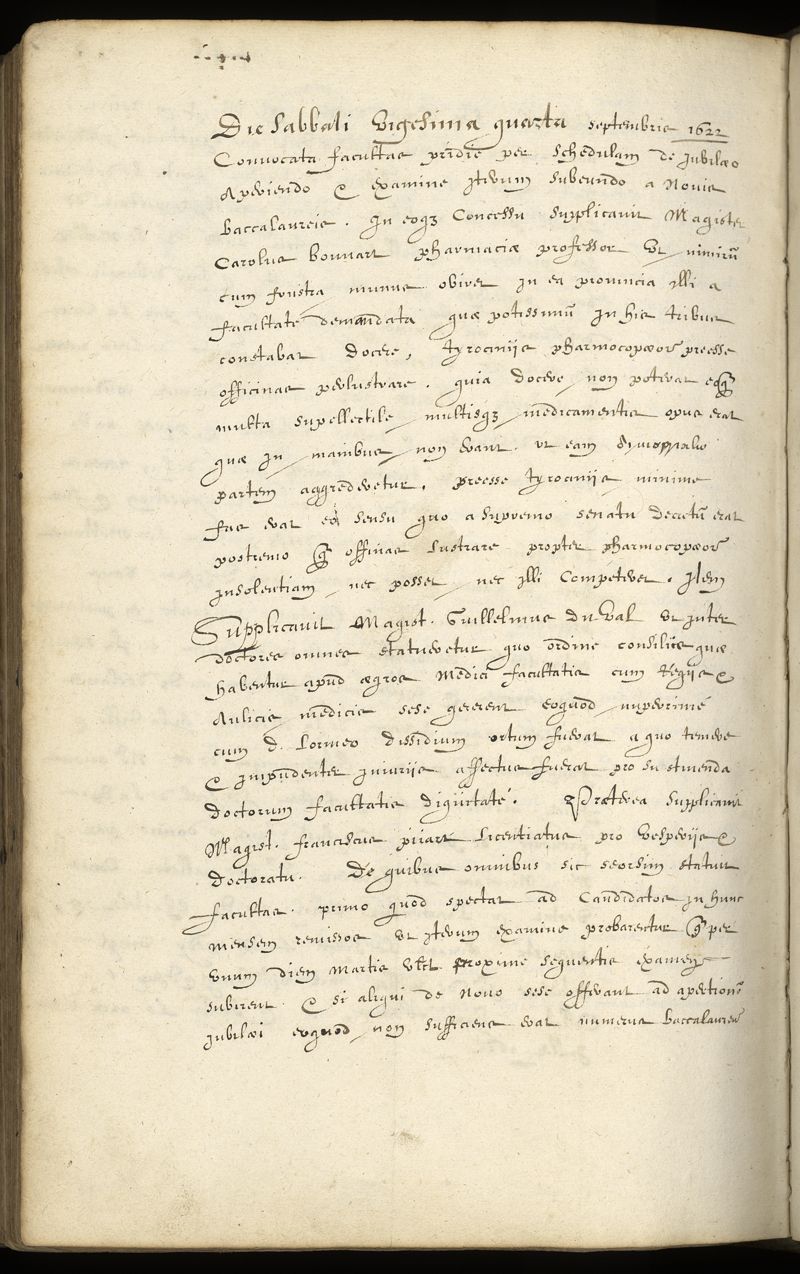 Die Sabbati Vigesima quarta septembris 1622
Convocata facultas pridie per schedulam de jubilæo
Aperiendo & examine iterum subeundo a Novis
Baccalaureis. In eoq3 Concessu supplicavit Magister
Carolus Bonnart pharmaciæ professor Vt, nimirū
cum frustra munus obiret in ea provincia illi a
facultate demandata quæ potissimū In his tribus
constabat Docere, tyrociniis pharmocopæorū præesse
officinas perlustrare. quia docere non poterat eo quod
multa supellectile multisq3 medicamentis opus erat
quæ in manibus non erant. ut eam
partem aggrederetur. præesse tyrociniis minime
fas erat eo sensu quo a supremo senatu decretū erat
postremo quod offinas lustrare propter pharmocopæorū
Insolentiam nec posset nec illi Competeret. Item
Supplicavit Magist. Guillelmus du Val Vt inter
doctores omnes statueretur quo ordine consiliis quæ
habentur apud ægros Medici facultatis cum Regiis &
Aulicis medicis sese gererent eoquod nuperrime
cum d. Lormeo dissidium ortum fuerat a quo temere
& impudenter iniuriis affectus fuerat pro sustinenda
doctorum facultatis dignitate. Præterea supplicavit
Magist. franciscus pijart licentiatus pro Vesperiis &
doctoratu. De quibus omnibus sic seorsim statuit
facultas. primo quod spectat ad Candidatos in hunc
mensem remissos Vt iterum examine probarentur quod per
Vnum diem Martis proxime sequentis examen
subirent. & si aliqui de Novo sese offerant ad apertionē
jubilæi eoquod non sufficiens erat numerus Baccalaureorū